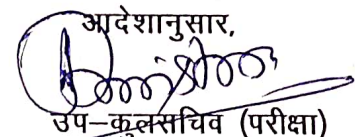 आदेशानुसार,
उप–कुलसचिव (परीक्षा)